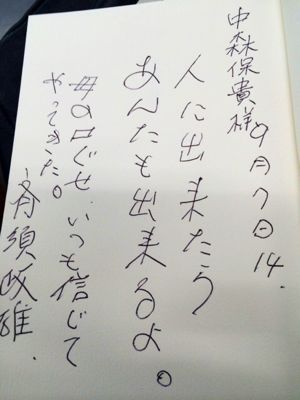 中森保貴様
9月7日14.
人に出来たら
あんたも出来るよ。
母の口ぐせ、いつも信じて
やってきた。
斉須政雄.